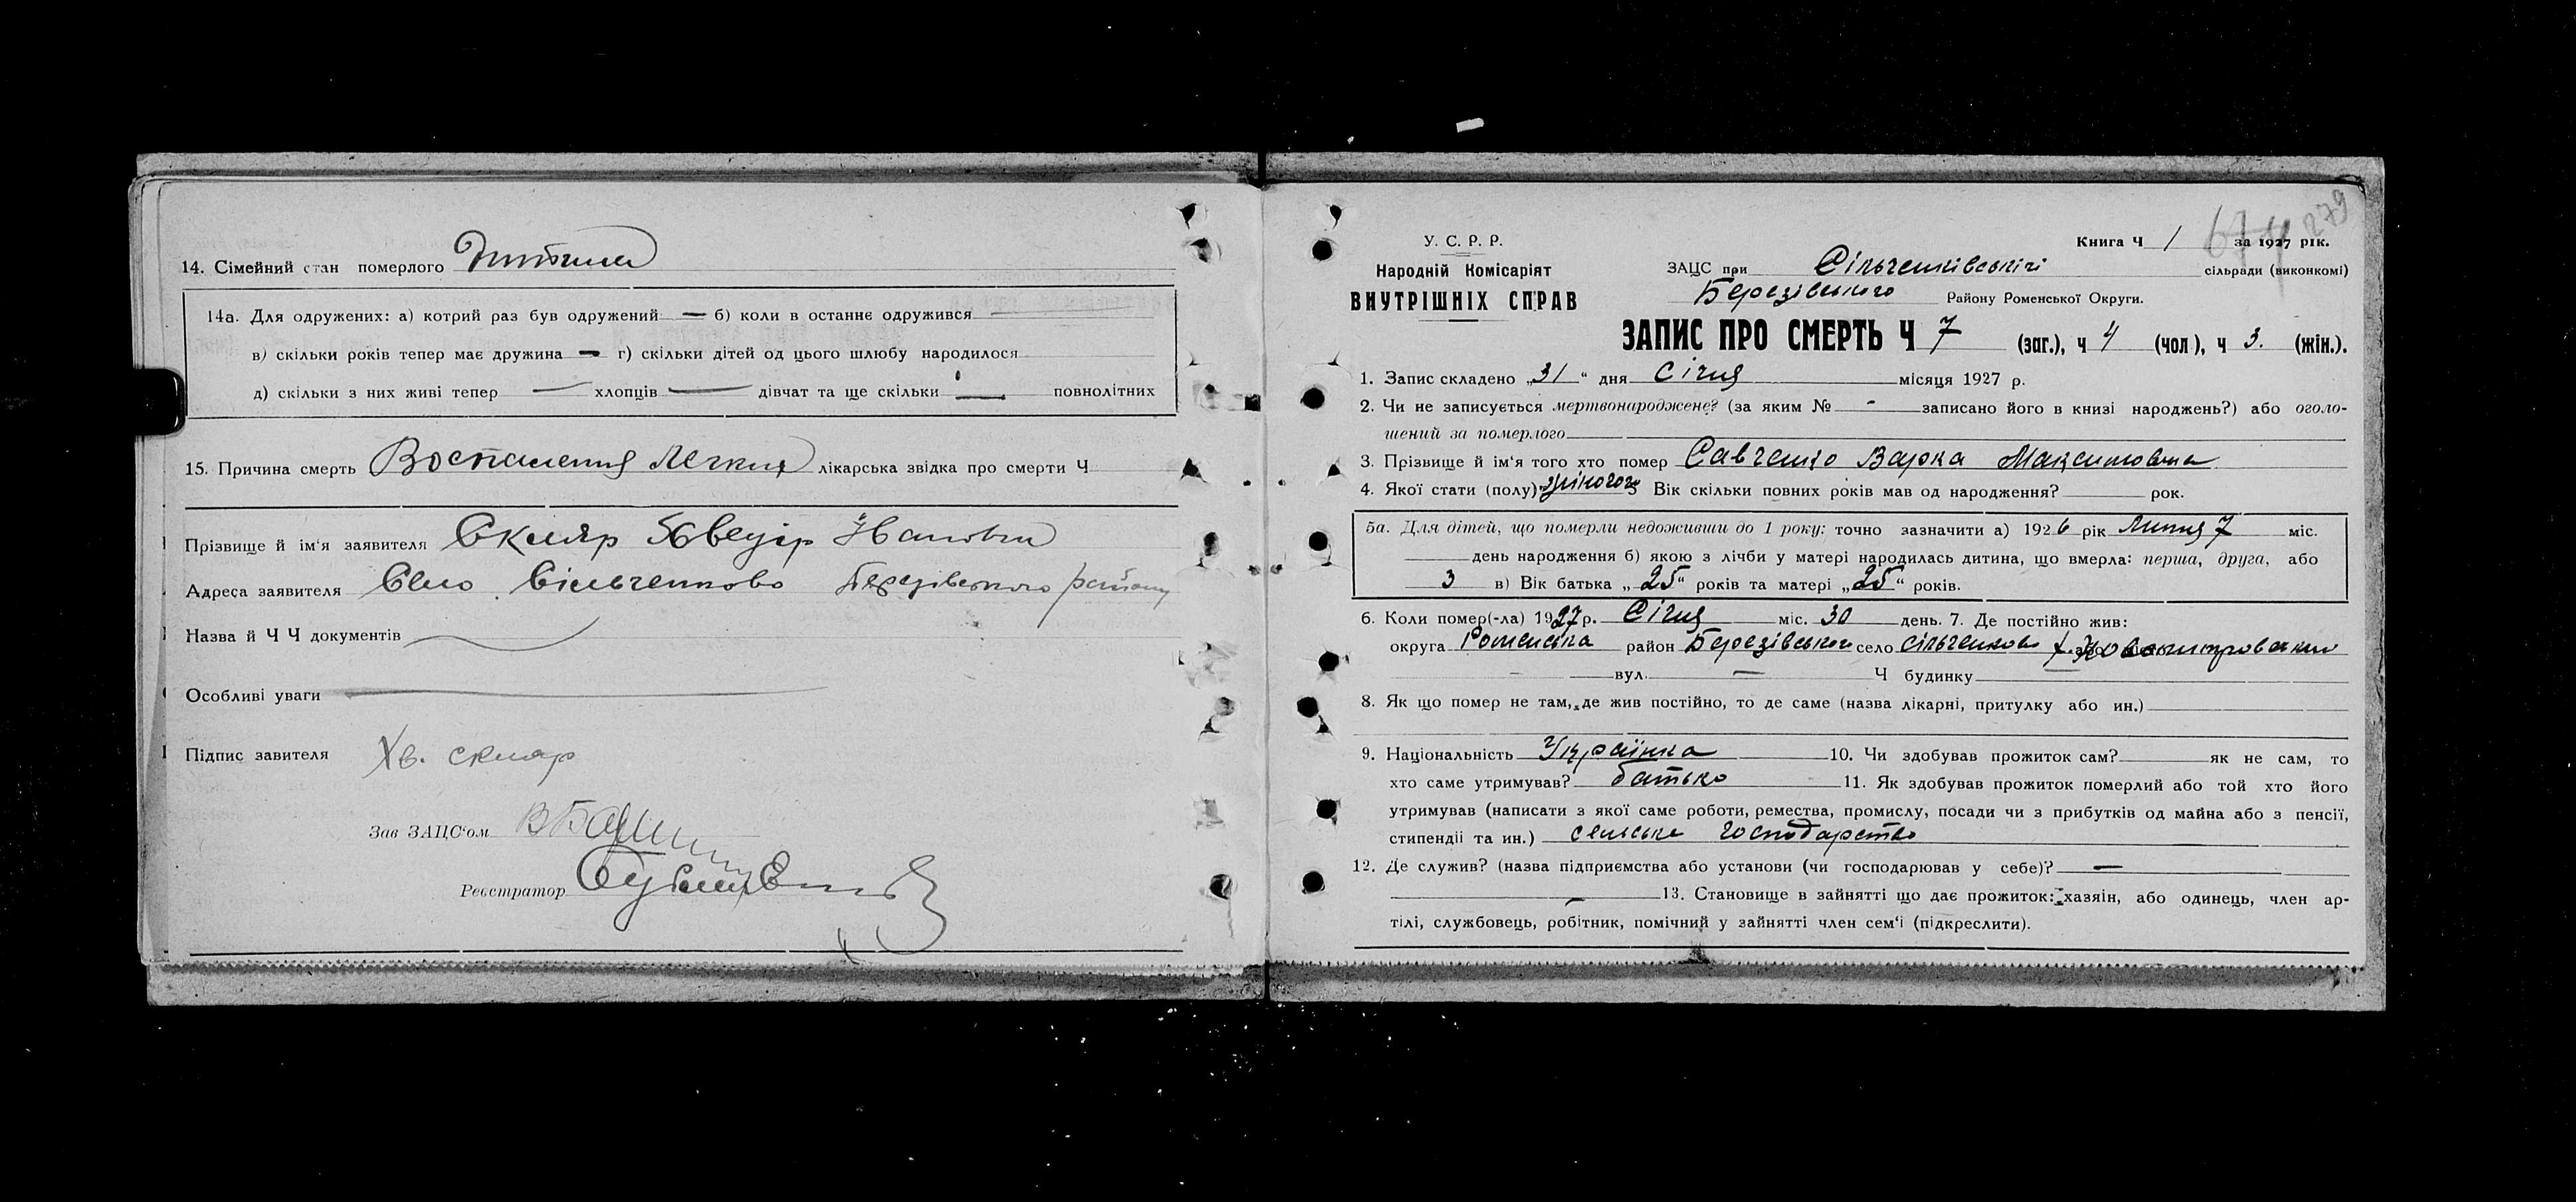 14. Сімейний стан померлого Дитина
14а. Для одружених: а) котрий раз був одружений — б) коли в останнє одружився
в) скільки років тепер має дружина — г) скільки дітей од цього шлюбу народилося
д) скільки з них живі тепер — хлопців — дівчат та ще скільки — повнолітних
15. Причина смерть Воспаления Легких лікарська звідка про смерти Ч
Прізвище й ім'я заявителя Скляр Іванович
Адреса заявителя Село Сільченково Березівського району
Назва й Ч Ч документів
Особливі уваги
Підпис завителя Хв. Скляр
Зав ЗАЦС'ом
Реєстратор
279
У. С. Р. Р.
Народній Комісаріят
ВНУТРІШНІХ СПРАВ
Книга Ч 1 за 1927 рік.
ЗАЦС при Сільченківській сільради (виконкомі)
Березівського Району Роменської Округи.
ЗАПИС ПРО СМЕРТЬ Ч 7 (заг.), ч 4 (чол), ч 3. (жін.).
1. Запис складено „31" дня Січня місяця 1927 р.
2. Чи не записується мертвонароджене? (за яким № - записано його в книзі народжень?) або оголо-
шений за померлого
3. Прізвище й ім'я того хто помер Савченко Варка Максимовна
4. Якої стати (полу) жіночого 5 Вік скільки повних років мав од народження? рок.
5а. Для дітей, що померли недоживши до 1 року: точно зазначити а) 1926 рік Липня 7 міс.
день народження б) якою з лічби у матері народилась дитина, що вмерла: перша, друга, або
3 в) Вік батька „25" років та матері „25" років.
6. Коли помер(-ла) 1927 р. Січня міс. 30 день. 7. Де постійно жив:
округа Роменська район Березівського село Сільченково
вул. — Ч будинку
8. Як що помер не там, де жив постійно, то де саме (назва лікарні, притулку або ин.)
9. Національність Українка 10. Чи здобував прожиток сам? як не сам, то
хто саме утримував? батько 11. Як здобував прожиток померлий або той хто його
утримував (написати з якої саме роботи, ремества, промислу, посади чи з прибутків од майна або з пенсії,
стипендії та ин.) сельське господарство
12. Де служив? (назва підприємства або установи (чи господарював у себе)? —
13. Становище в зайнятті що дає прожиток: хазяїн, або одинець, член ар-
тілі, службовець, робітник, помічний у зайнятті член сем'ї (підкреслити).